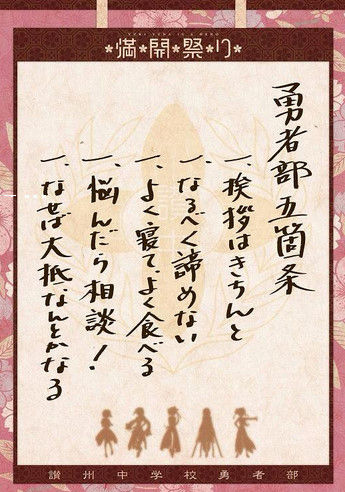 YUKI YUNA IS A HERO
満開祭り
勇者部五箇条
一、挨拶はきちんと
一、なるべく諦めない
一、よく寝て、よく食べる
一、悩んだら相談!
一、なせば大抵なんとかなる
讃州中学校勇者部